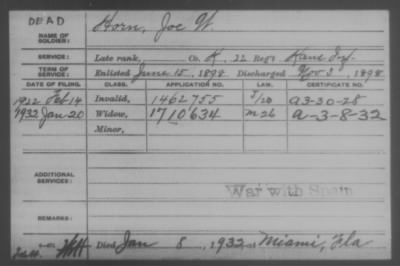 DEAD
NAME OF SOLDIER: Horn, Joe W.
SERVICE: Late rank, Co. K, 22 Reg't Kans Inf.
TERM OF SERVICE: Enlisted June 15, 1898 Discharged Nov 3, 1898
DATE OF FILING. CLASS. APPLICATION NO. LAW. CERTIFICATE NO.
1922 Feb 14 Invalid, 1462755 A-3-30-28
1932 Jan 20 Widow, 1710634 M-26 A-3-8-32
Minor,
ADDITIONAL SERVICES:
War with Spain
REMARKS:
Died Jan 8, 1932 at Miami, Fla